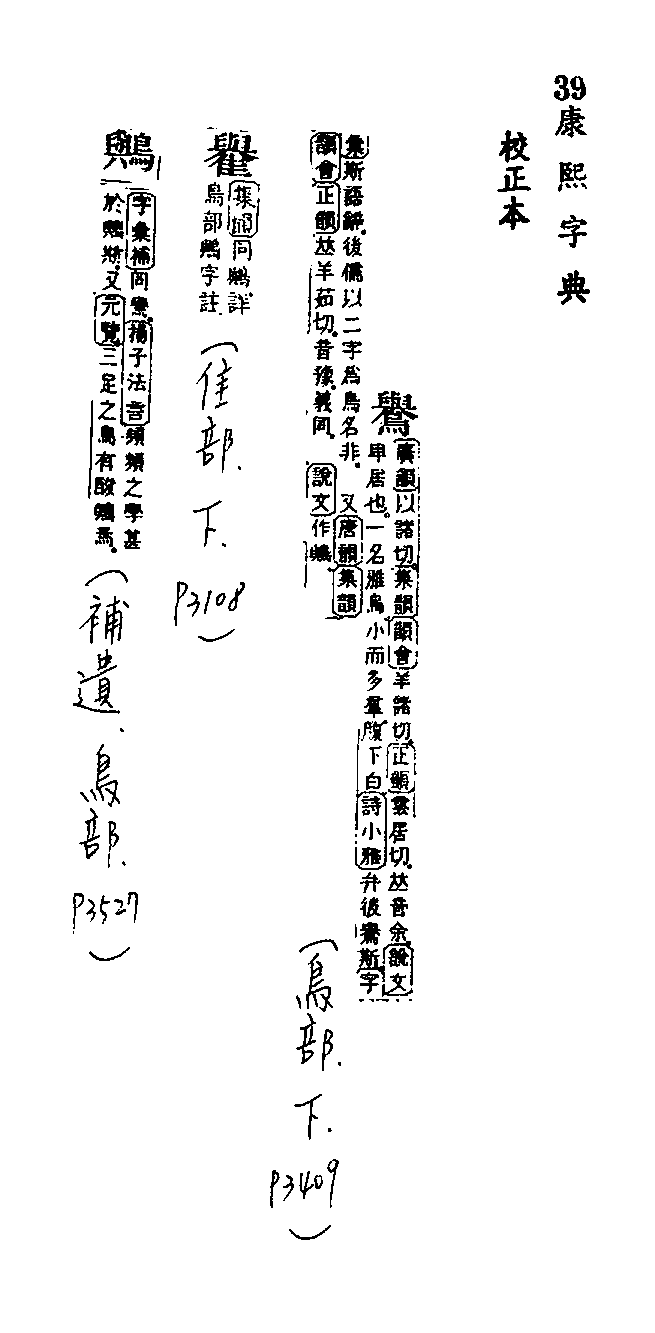 39康熙字典
校正本
鸒
廣韻以諸切集韻韻會羊諸切正韻雲居切𠀤音余說文
卑居也一名雅烏小而多羣腹下白詩小雅弁彼鸒斯字
彙斯語辭後儒以二字為鳥名非 又唐韻集韻
韻會正韻𠀤羊茹切音豫義同 說文作鸒
(鳥部.下.P3409)
集韻同鸒詳
鳥部鸒字註
(隹部.下.P3108)
字彙補同鸒揚子法言頻頻之學甚
於鸒斯又元覽三足之鳥有酸鸒焉
(補遺.鳥部.P3527)